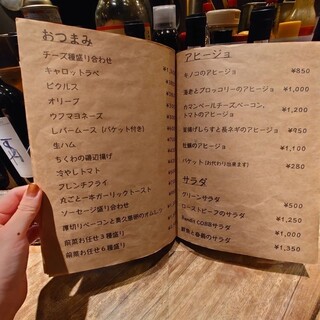 おつまみ
チーズ種盛り合わせ
キャロットラペ
ピクルス
オリーブ
ウフマヨネーズ
レバームース（バケット付き）
生ハム
ちくわの磯辺揚げ
冷やしトマト
フレンチフライ
丸ごと一本ガーリックトースト
ソーセージ盛り合わせ
厚切りベーコンと奥久慈卵のオムレツ
前菜お任せ3種盛り
前菜お任せ6種盛り
アヒージョ
キノコのアヒージョ ¥850
海老とブロッコリーのアヒージョ ¥1,200
カマンベールチーズベーコン、
トマトのアヒージョ ¥1,200
釜揚げしらすと長ネギのアヒージョ ¥950
牡蠣のアヒージョ ¥1,100
バケット（お代わり出来ます） ¥280
サラダ
グリーンサラダ ¥500
ローストビーフのサラダ ¥1,250
COBBサラダ ¥1,000
のサラダ ¥1,350